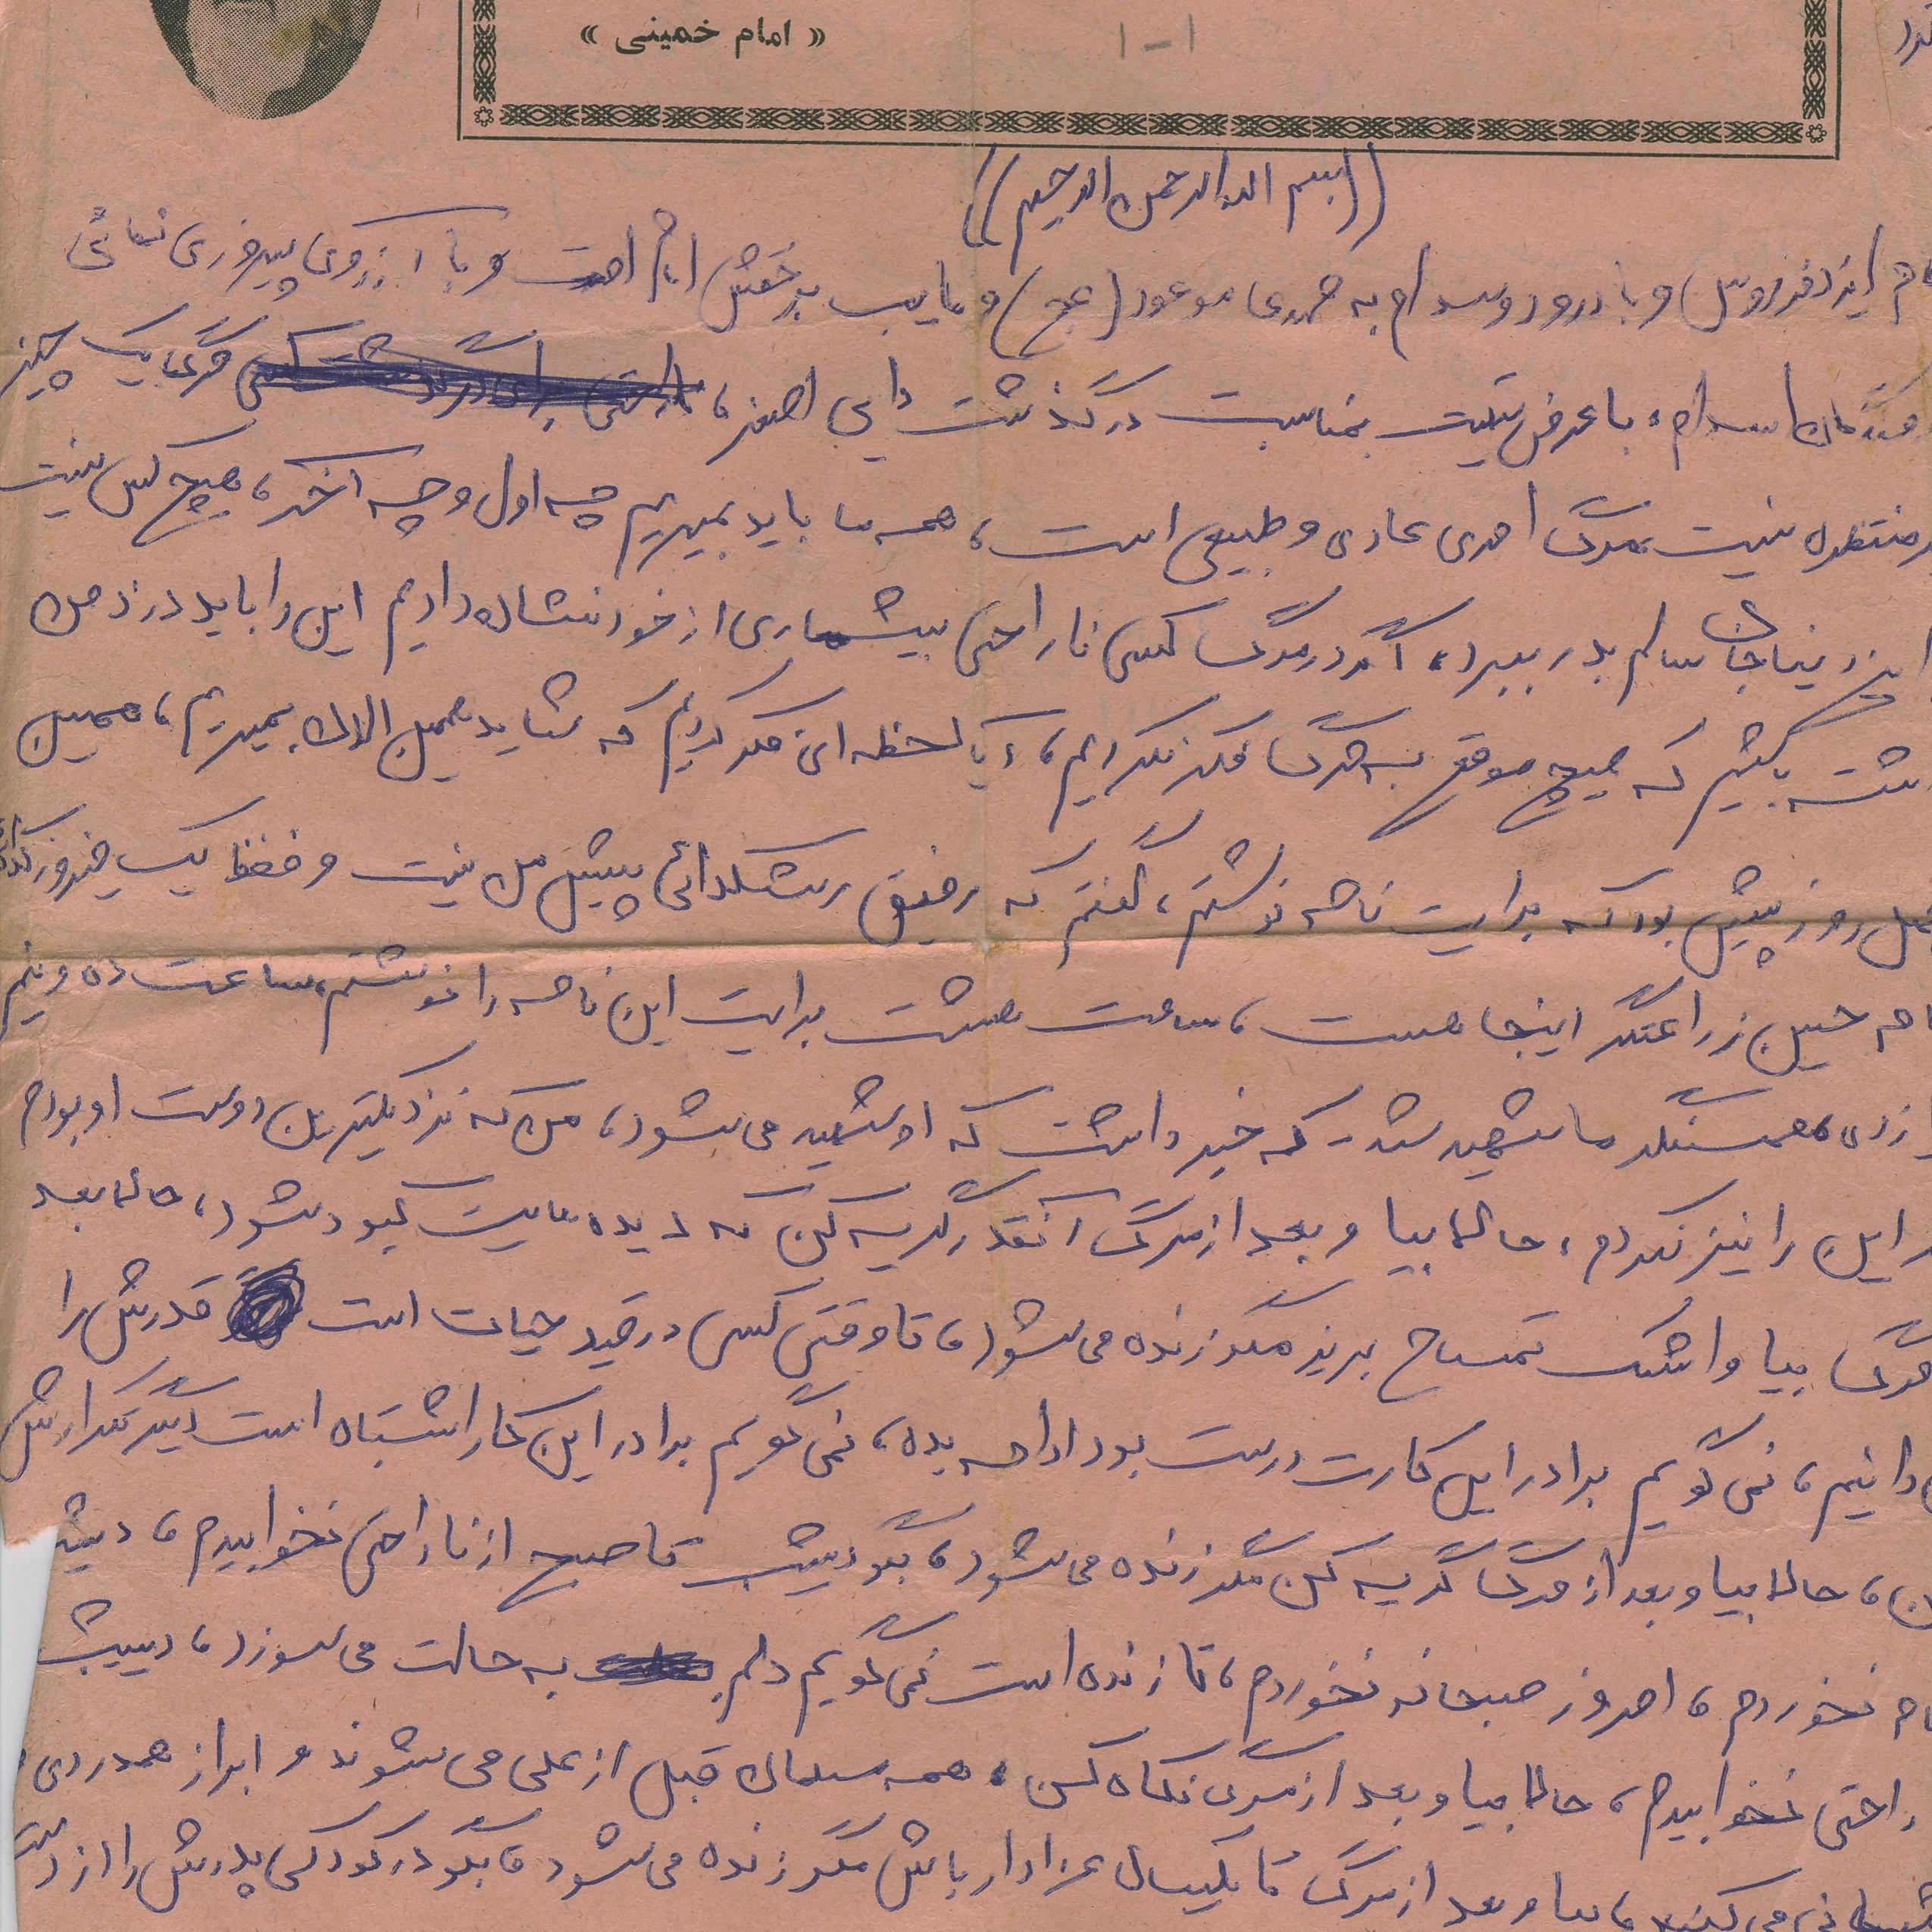 « امام خمینی »
۱-۱
((بسم الله الرحمن الرحیم))
ایزد فردوس و با درود و سلام به مهدی موعود (عج) و نایب برحقش امام امت و با آرزوی پیروزی نهائی
اسلام، با عرض تسلیت بمناسبت درگذشت دایی اصغر، مرگ یک چیز
منتظره نیست مرگ امری عادی و طبیعی است، همه ما باید بمیریم چه اول و چه آخر، هیچ کس نیست
دنیا جان سالم بدر ببرد، اگر در مرگ کسی ناراحتی بیشماری از خود نشان دادیم این را باید در نزد من
باشیم که هیچ موقع به مرگ فکر نکردیم، آیا لحظه ای فکر کردیم که شاید همین الان بمیریم، همین
روز پیش بود که برایت نامه نوشتم، گفتم که رفیق پیش من نیست و فقط یک
حسین زراعتگر اینجا هست، ساعت هشت برایت این نامه را نوشتم، ساعت ده و نیم
همسنگر ما شهید شد - که خبر داشت که او شهید می شود، من که نزدیکترین دوست او بودم
این را نیز نکردم، حالا بیا و بعد از مرگ آنقدر گریه کن که دیده هایت کبود شود، حالا بعد
مرگ بیا و اشک تمساح بریز مگر زنده می شود، تا وقتی کسی در قید حیات است قدرش را
دانیم، نمی گویم برادر این کارت درست بود ادامه بده، نمی گویم برادر این کار اشتباه است دیگر تکرارش
حالا بیا و بعد از مرگ گریه کن مگر زنده می شود، بگو دیشب تا صبح از ناراحتی نخوابیدم، دیشب
نخوردم، امروز صبحانه نخوردم، تا زنده است نمی گویم دلم به حالت می سوزد، دیشب
نخوابیدم، حالا بیا و بعد از مرگ نگاه کن، همه سلمان قبل از علی می شوند و ابراز همدردی
بیا و بعد از مرگ تا یکسال عزادار باش مگر زنده می شود، بگو در کودکی پدرش را از دست